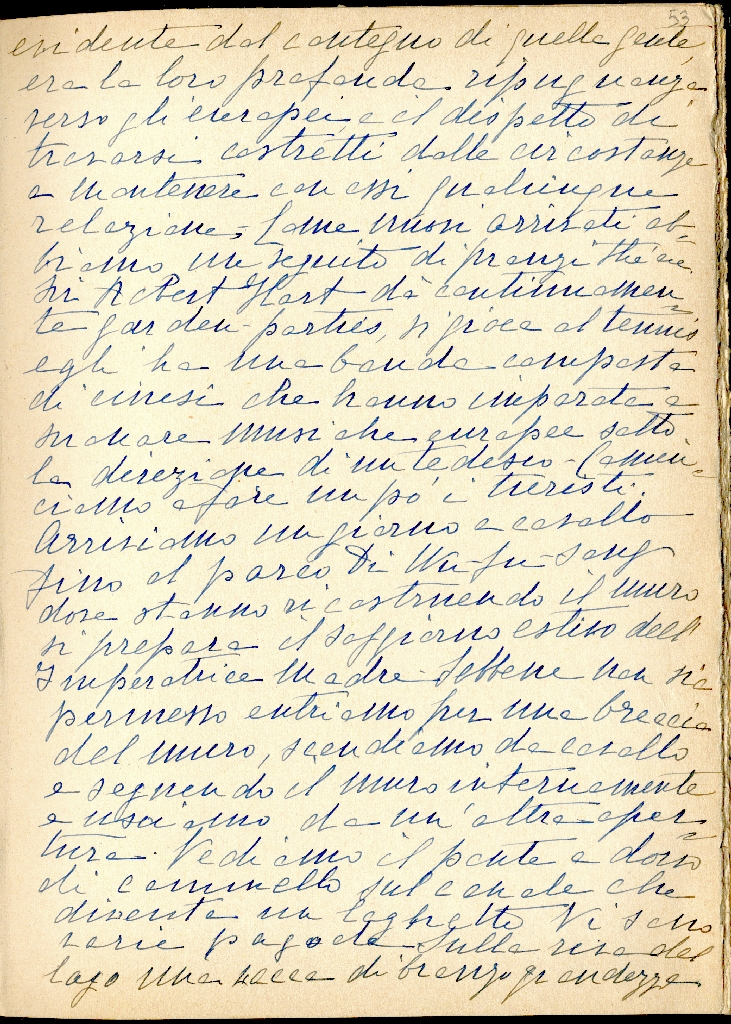 53
evidente dal contegno di quella gente,
era la loro profonda ripugnanza
verso gli europei, e il dispetto di
trovarsi costretti dalle circostanze
a mantenere con essi qualunque
relazione. Come nuovi arrivati ab-
biamo un seguito di pranzi thè ecc
Sir Robert Hart dà continuamen-
te garden-parties, si gioca al tennis
egli ha una banda composta
di cinesi che hanno imparato a
suonare musiche europee sotto
la direzione di un tedesco - Comin-
ciamo a fare un pò i turisti.
Arriviamo un giorno a cavallo
fino al parco di Wan-su-sang
dove stanno ricostruendo il muro
si prepara il soggiorno estivo dell'
Imperatrice Madre - Sebbene non sia
permesso entriamo per una breccia
del muro, scendiamo da cavallo
e seguendo il muro internamente
e usciamo da un'altra aper-
tura. Vediamo il ponte a dorso
di cammello sul canale che
diventa un laghetto. Vi sono
varie pagode. Sulla riva del
lago una vacca di bronzo grandezza